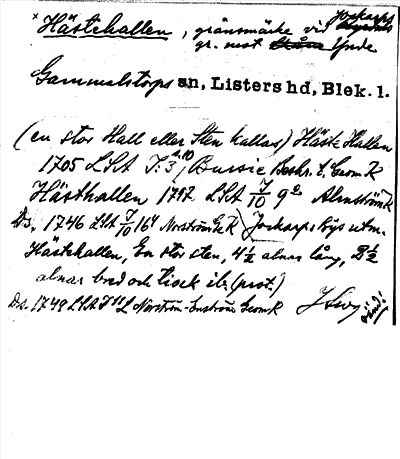 × Hästehallen, gränsmärke vid Jockarps
gr. mot Skåne Ynde
Gammalstorps sn, Listers hd, Blek. l.
(en stor Hall eller Sten kallas) Häste Hallen
1705 LSA J. 3, Bussie Beskr. t. Geom K
Hästhallen 17 LSA 7/10 9 Almström K
Ds. 1746 LSA 7/10 16 Norström G K Jockarps bys utm.
Hästehallen, En stor sten, 4 1/2 alnar lång, 2 1/2
alnar bred och tiock ib. (prot.)
D.s. 1748 LSA Norström Geom K